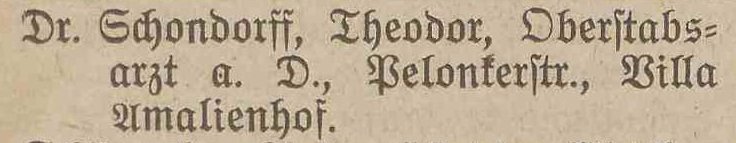 Dr. Schondorff, Theodor, Oberstabs-
arzt a. D., Pelonkerstr., Villa
Amalienhof.